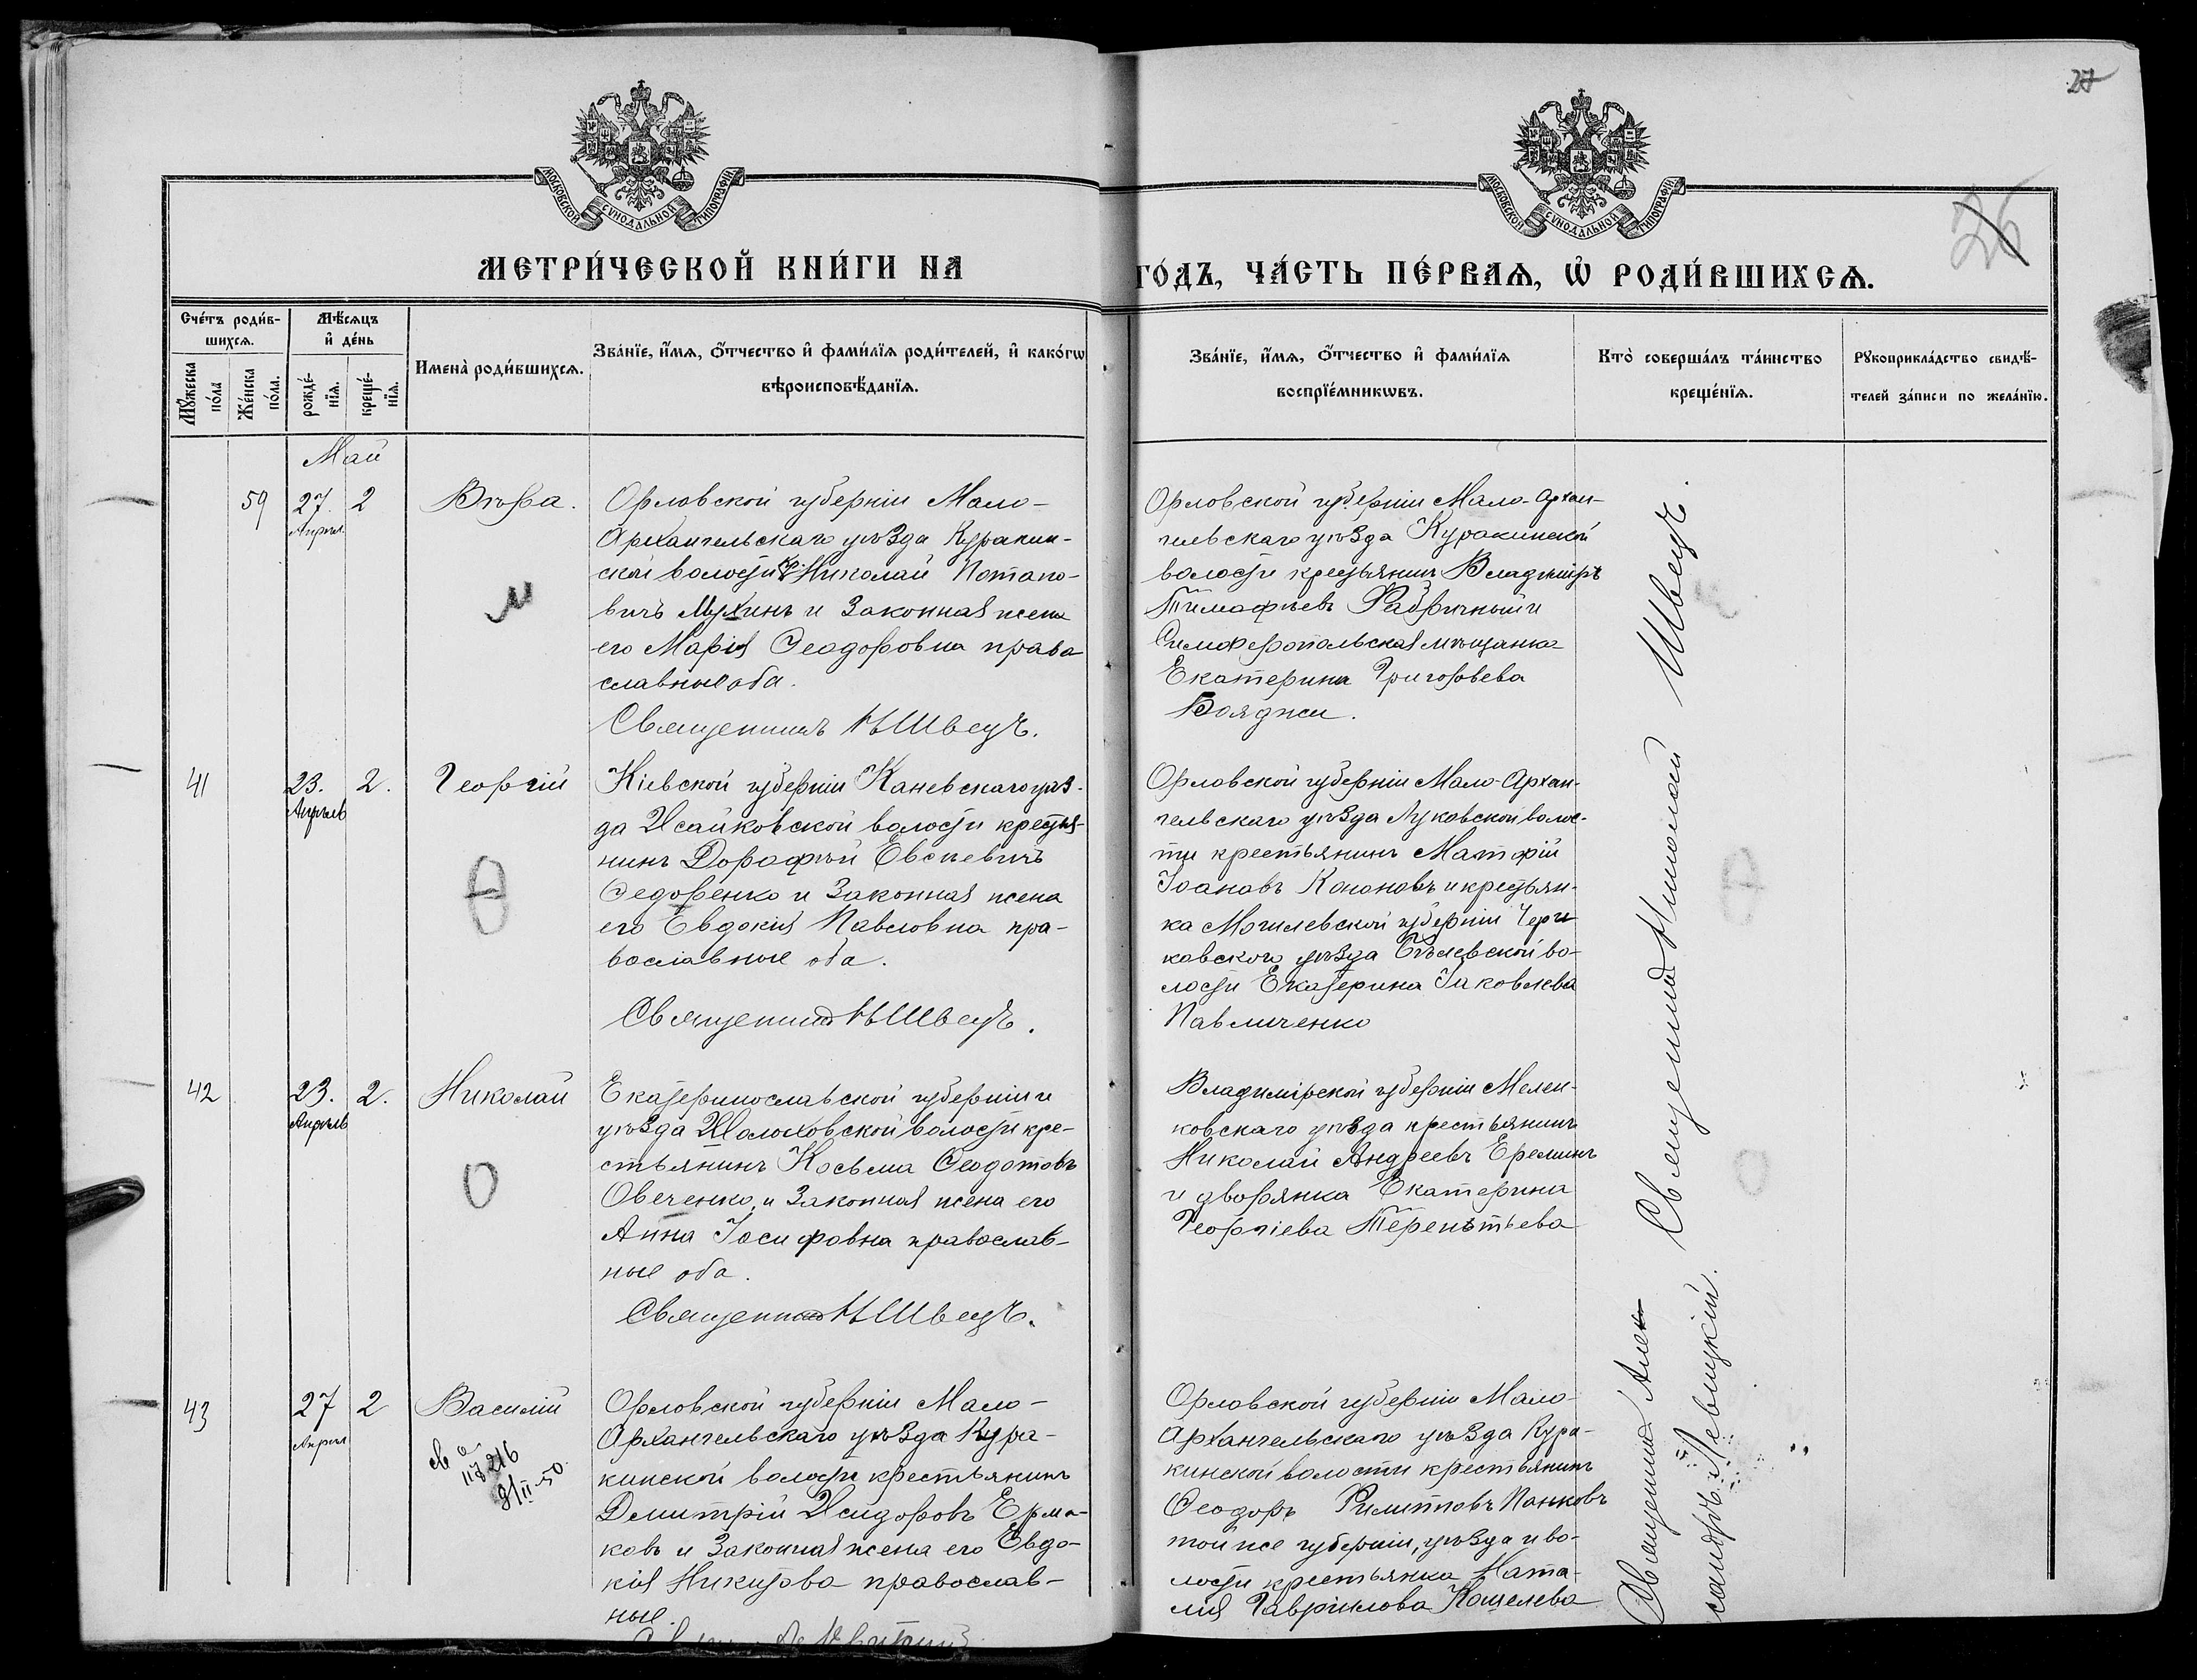 27
26
МОСКОВСКОЙ СѴНОДАЛЬНОЙ ТИПОГРАФІИ
МОСКОВСКОЙ СѴНОДАЛЬНОЙ ТИПОГРАФІИ
МЕТРИ́ЧЕСКОЙ КНИ́ГИ НА
ГО́ДЪ, ЧА́СТЬ ПЕ́РВАѦ, Ѡ҆ РОДИ́ВШИХСѦ.
Сче́тъ роди́в-
шихсѧ.
Мꙋ́жеска
по́ла
Же́нска
по́ла.
Мѣ́сѧцъ
и҆ де́нь
рожде́-
нїѧ.
креще́-
нїѧ.
Имена̀ роди́вшихсѧ.
Зва́нїе, и҆́мѧ, ѻ҆́тчество и҆ фами́лїѧ роди́телей, и҆ како́гѡ
вѣроисповѣ́данїѧ.
Зва́нїе, и҆́мѧ, ѻ҆́тчество и҆ фами́лїѧ
воспрїе́мникѡвъ.
Кто̀ соверша́лъ та́инство
креще́нїѧ.
Рꙋкоприкла́дство свидѣ́-
телей за́писи по жела́нїю.
Май
59 27. 2 Вѣра.
Апрѣл.
Орловской губерніи Мало-
Архангельскаго уѣзда Куракин-
ской волости кр. Николай Потапо-
вичъ Мухинъ и законная жена
его Марія Ѳеодоровна право
славные оба.
Священникъ Н Швецъ.
Орловской губерніи Мало-Архан-
гельскаго уѣзда Куракинской
волости крестьянинъ Владиміръ
Тимофѣевъ Фабричный и
Симферопольская мѣщанка
Екатерина Григорьева
Бояджи.
41 23. 2. Георгій
Апрѣль
Кіевской губерніи Каневскаго уѣз-
да Исайковской волости крестья-
нинъ Дорофѣй Евсѣевичъ
Ѳедоренко и законная жена
его Евдокія Павловна пра-
вославные оба.
Священникъ Н Швецъ.
Орловской губерніи Мало-Архан-
гельскаго уѣзда Луковской волос-
ти крестьянинъ Матфій
Іоановъ Кононовъ и крестьян-
ка Могилевской губерніи Чери
ковского уѣзда Бѣлевской во-
лости Екатерина Іаковлева
Павличенко
42 23. 2. Николай
Апрѣль
Екатеринославской губерніи и
уѣзда Шолоховской волости кре-
стьянинъ Косьма Ѳеодотовъ
Овеченко, и законная жена его
Анна Іосифовна православ-
ные оба.
Священникъ Н Швецъ.
Владимірской губерніи Мелен-
ковскаго уѣзда крестьянинъ
Николай Андреевъ Ереминъ
и дворянка Екатерина
Георгіева Терентьева
43 27 2 Василій
Апрѣл
св
216
8/II-50
Орловской губерніи Мало-
Архангельскаго уѣзда Кура-
кинской волости крестьянинъ
Димитрій Исидоровъ Ерма-
ковъ и законная жена его Евдо-
кія Никитова православ-
ные.
Орловской губерніи Мало-
Архангельскаго уѣзда Кура-
кинской волости крестьянинъ
Ѳеодоръ Филипповъ Панковъ
той же губерніи, уѣзда и во-
лости крестьянка Ната-
лія Гавріилова Кошелева
Священникъ Николай Швецъ.
Священникъ Алек-
сандръ Левицкій.